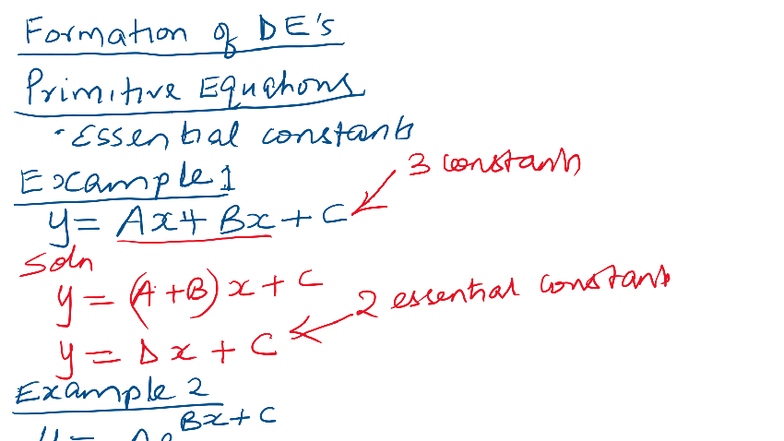 Formation of DE's
Primitive Equations
· Essential constants
Example 1
3 constants
y = Ax + Bx + C
Soln
y = (A + B) x + C
2 essential constants
y = Dx + C
Example 2
y = Ae^{Bx + C}